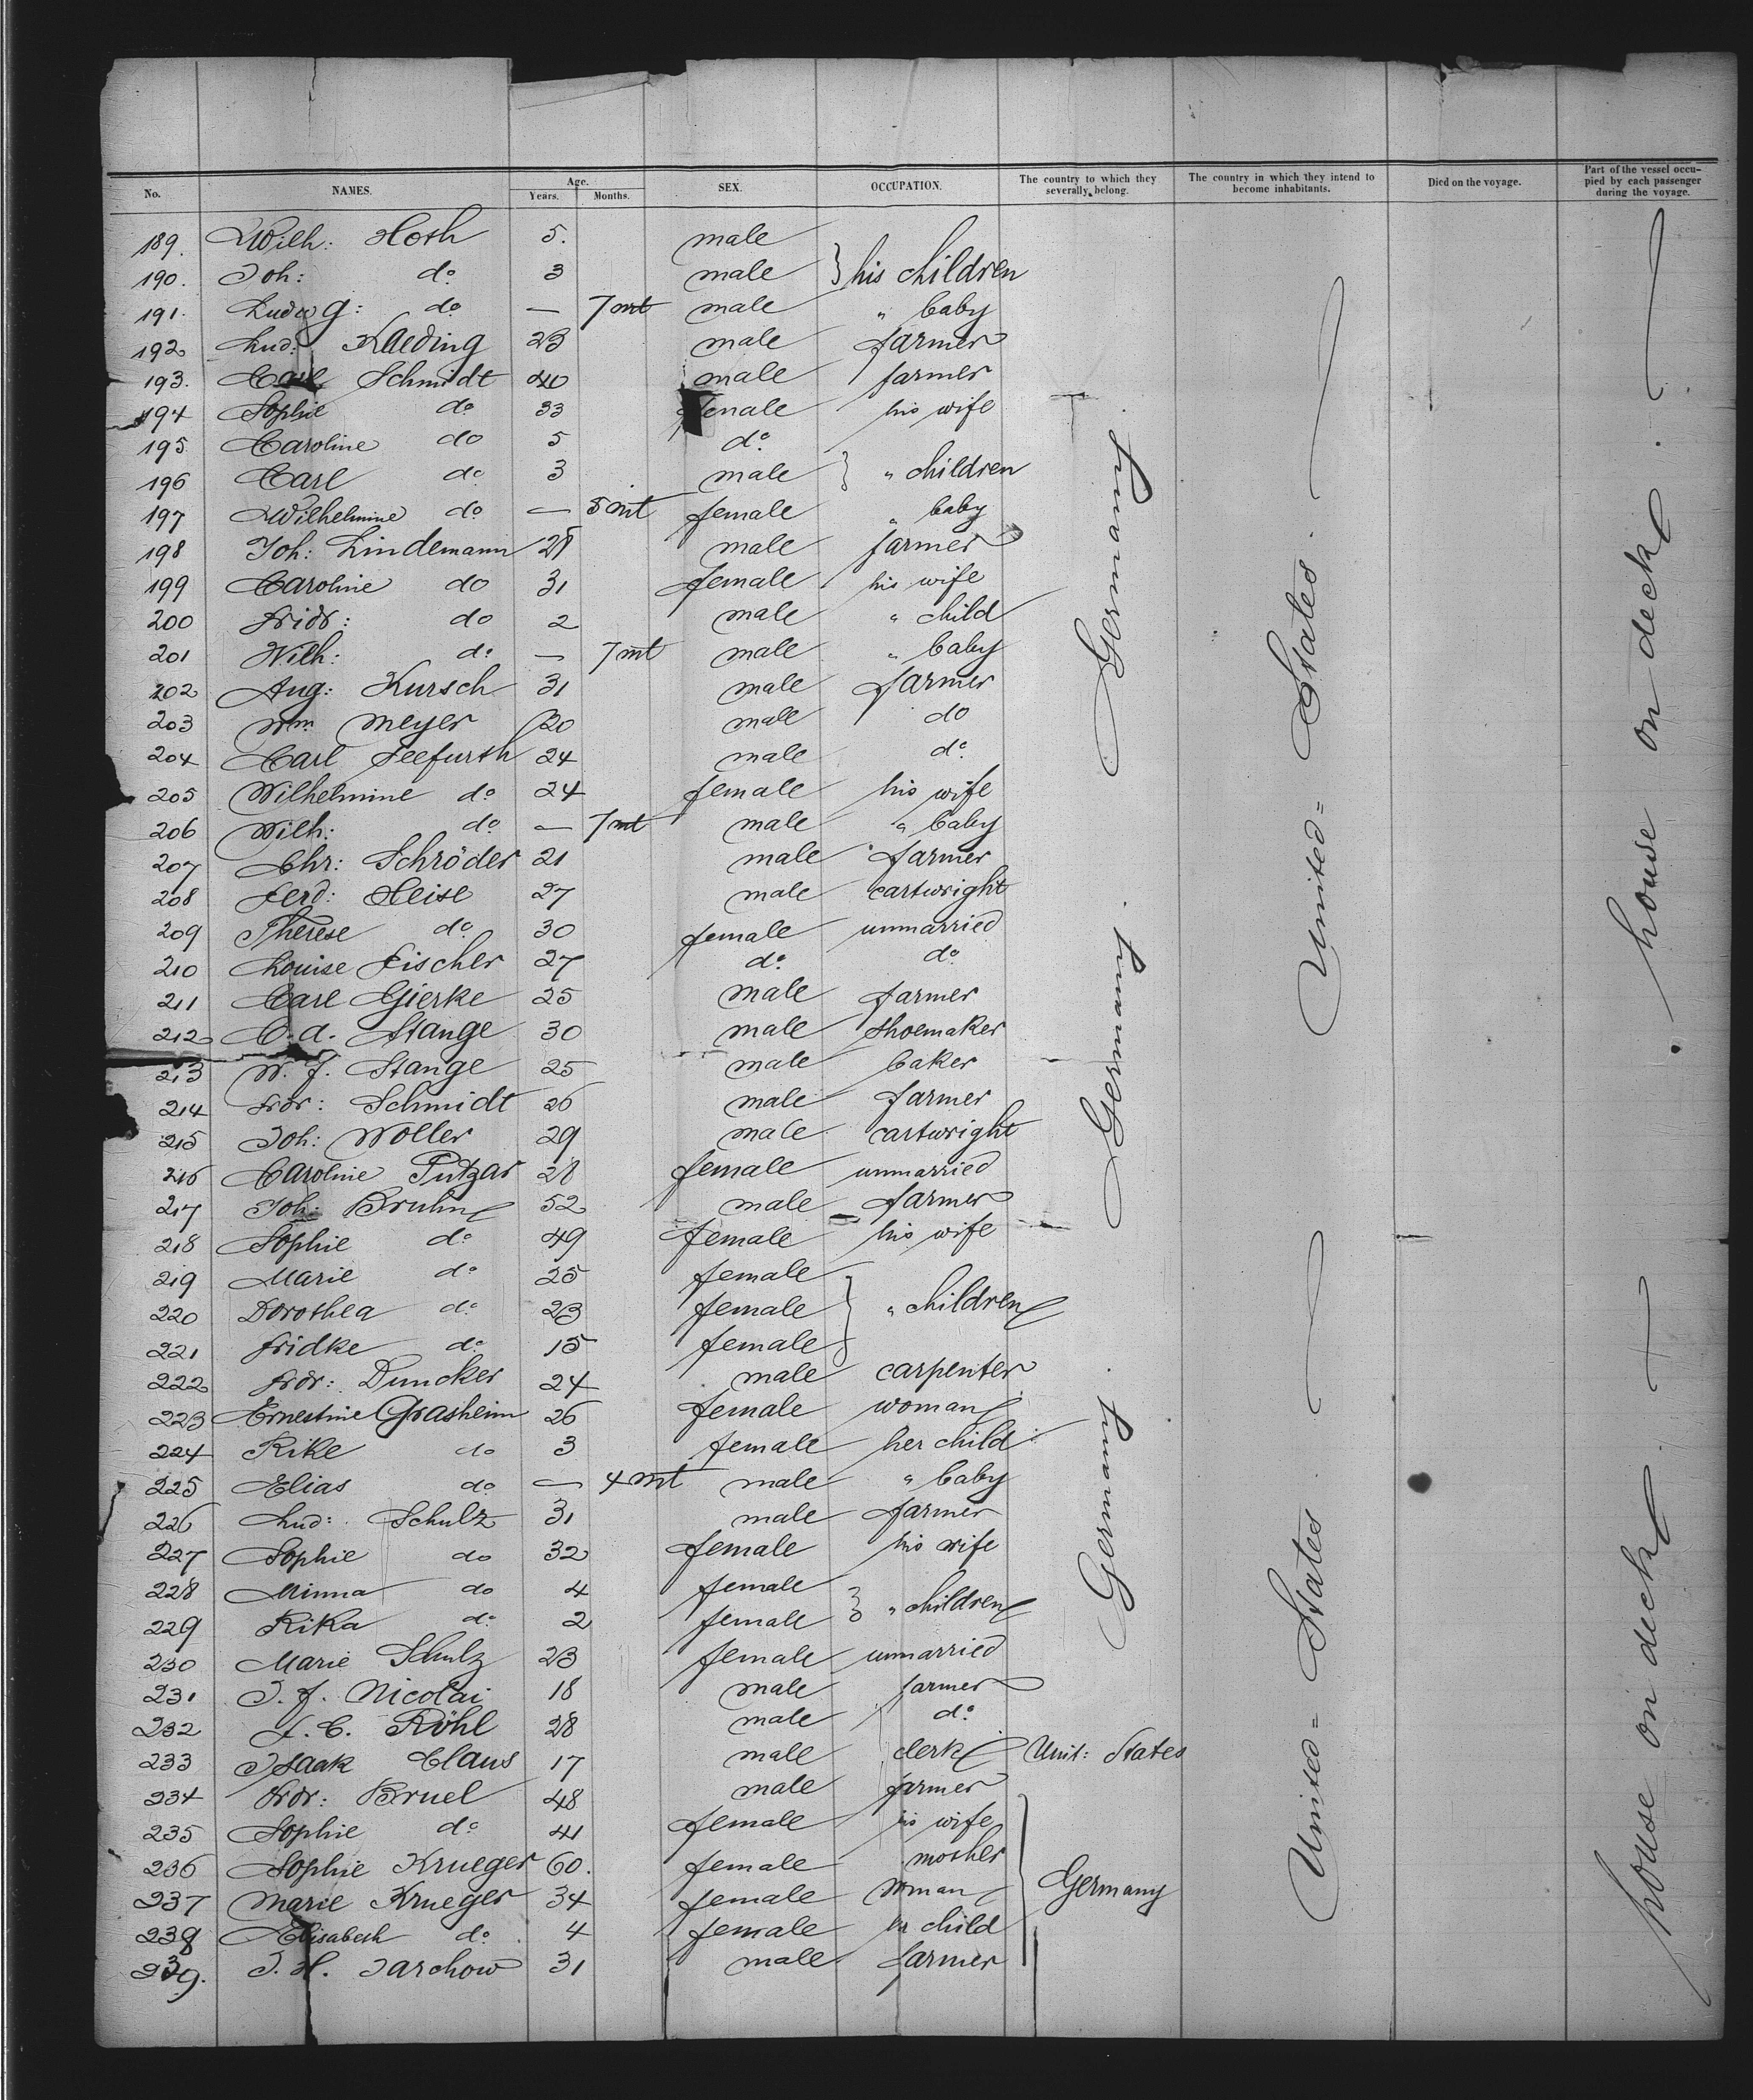 No. NAMES. Age. Years. Months. SEX. OCCUPATION. The country to which they severally belong. The country in which they intend to become inhabitants. Died on the voyage. Part of the vessel occupied by each passenger during the voyage.
189. Wilh: Hoth 5. male
190. Joh: do 3 male } his children
191. Ludwg: do — 7 mt male " baby
192 Lud: Kaeding 23 male farmer
193. Carl Schmidt 40 male farmer
194 Sophie do 33 female his wife
195 Caroline do 5 do
196 Carl do 3 male } " children
197 Wilhelmine do — 5 mt female " baby
198 Joh: Lindemann 28 male farmer
199 Caroline do 31 female his wife
200 Fridr: do 2 male " child
201 Wilh: do — 7 mt male " baby
202 Aug: Kursch 31 male farmer
203 Wm Meyer 20 male do
204 Carl Seefurth 24 male do
205 Wilhelmine do 24 female his wife
206 Wilh: do — 7 mt male " baby
207 Chr: Schröder 21 male farmer
208 Ferd: Heise 27 male cartwright
209 Therese do 30 female unmarried
210 Louise Fischer 27 do do
211 Carl Gierke 25 male farmer
212 C. A. Stange 30 male shoemaker
213 W. F. Stange 25 male baker
214 Frdr: Schmidt 26 male farmer
215 Joh: Woller 29 male cartwright
216 Caroline Putzar 28 female unmarried
217 Joh: Bruhn 52 male farmer
218 Sophie do 49 female his wife
219 Marie do 25 female
220 Dorothea do 23 female } " children
221 Fridke do 15 female
222 Frdr: Duncker 24 male carpenter
223 Ernestine Grasheim 26 female woman
224 Rike do 3 female her child
225 Elias do — 4 mt male " baby
226 Lud: Schulz 31 male farmer
227 Sophie do 32 female his wife
228 Minna do 4 female
229 Rika do 2 female } " children
230 Marie Schulz 23 female unmarried
231 J. F. Nicolai 18 male farmer
232 F. C. Röhl 28 male do
233 Isaak Claus 17 male clerk Unit: States
234 Frdr: Bruel 48 male farmer
235 Sophie do 41 female his wife
236 Sophie Krueger 60. female mother
237 Marie Krueger 34 female woman Germany
238 Elisabeth do 4 female her child
239. J. H. Jarchow 31 male farmer
Germany.
Germany.
Germany.
United= States.
United= States.
house on deck.
house on deck.